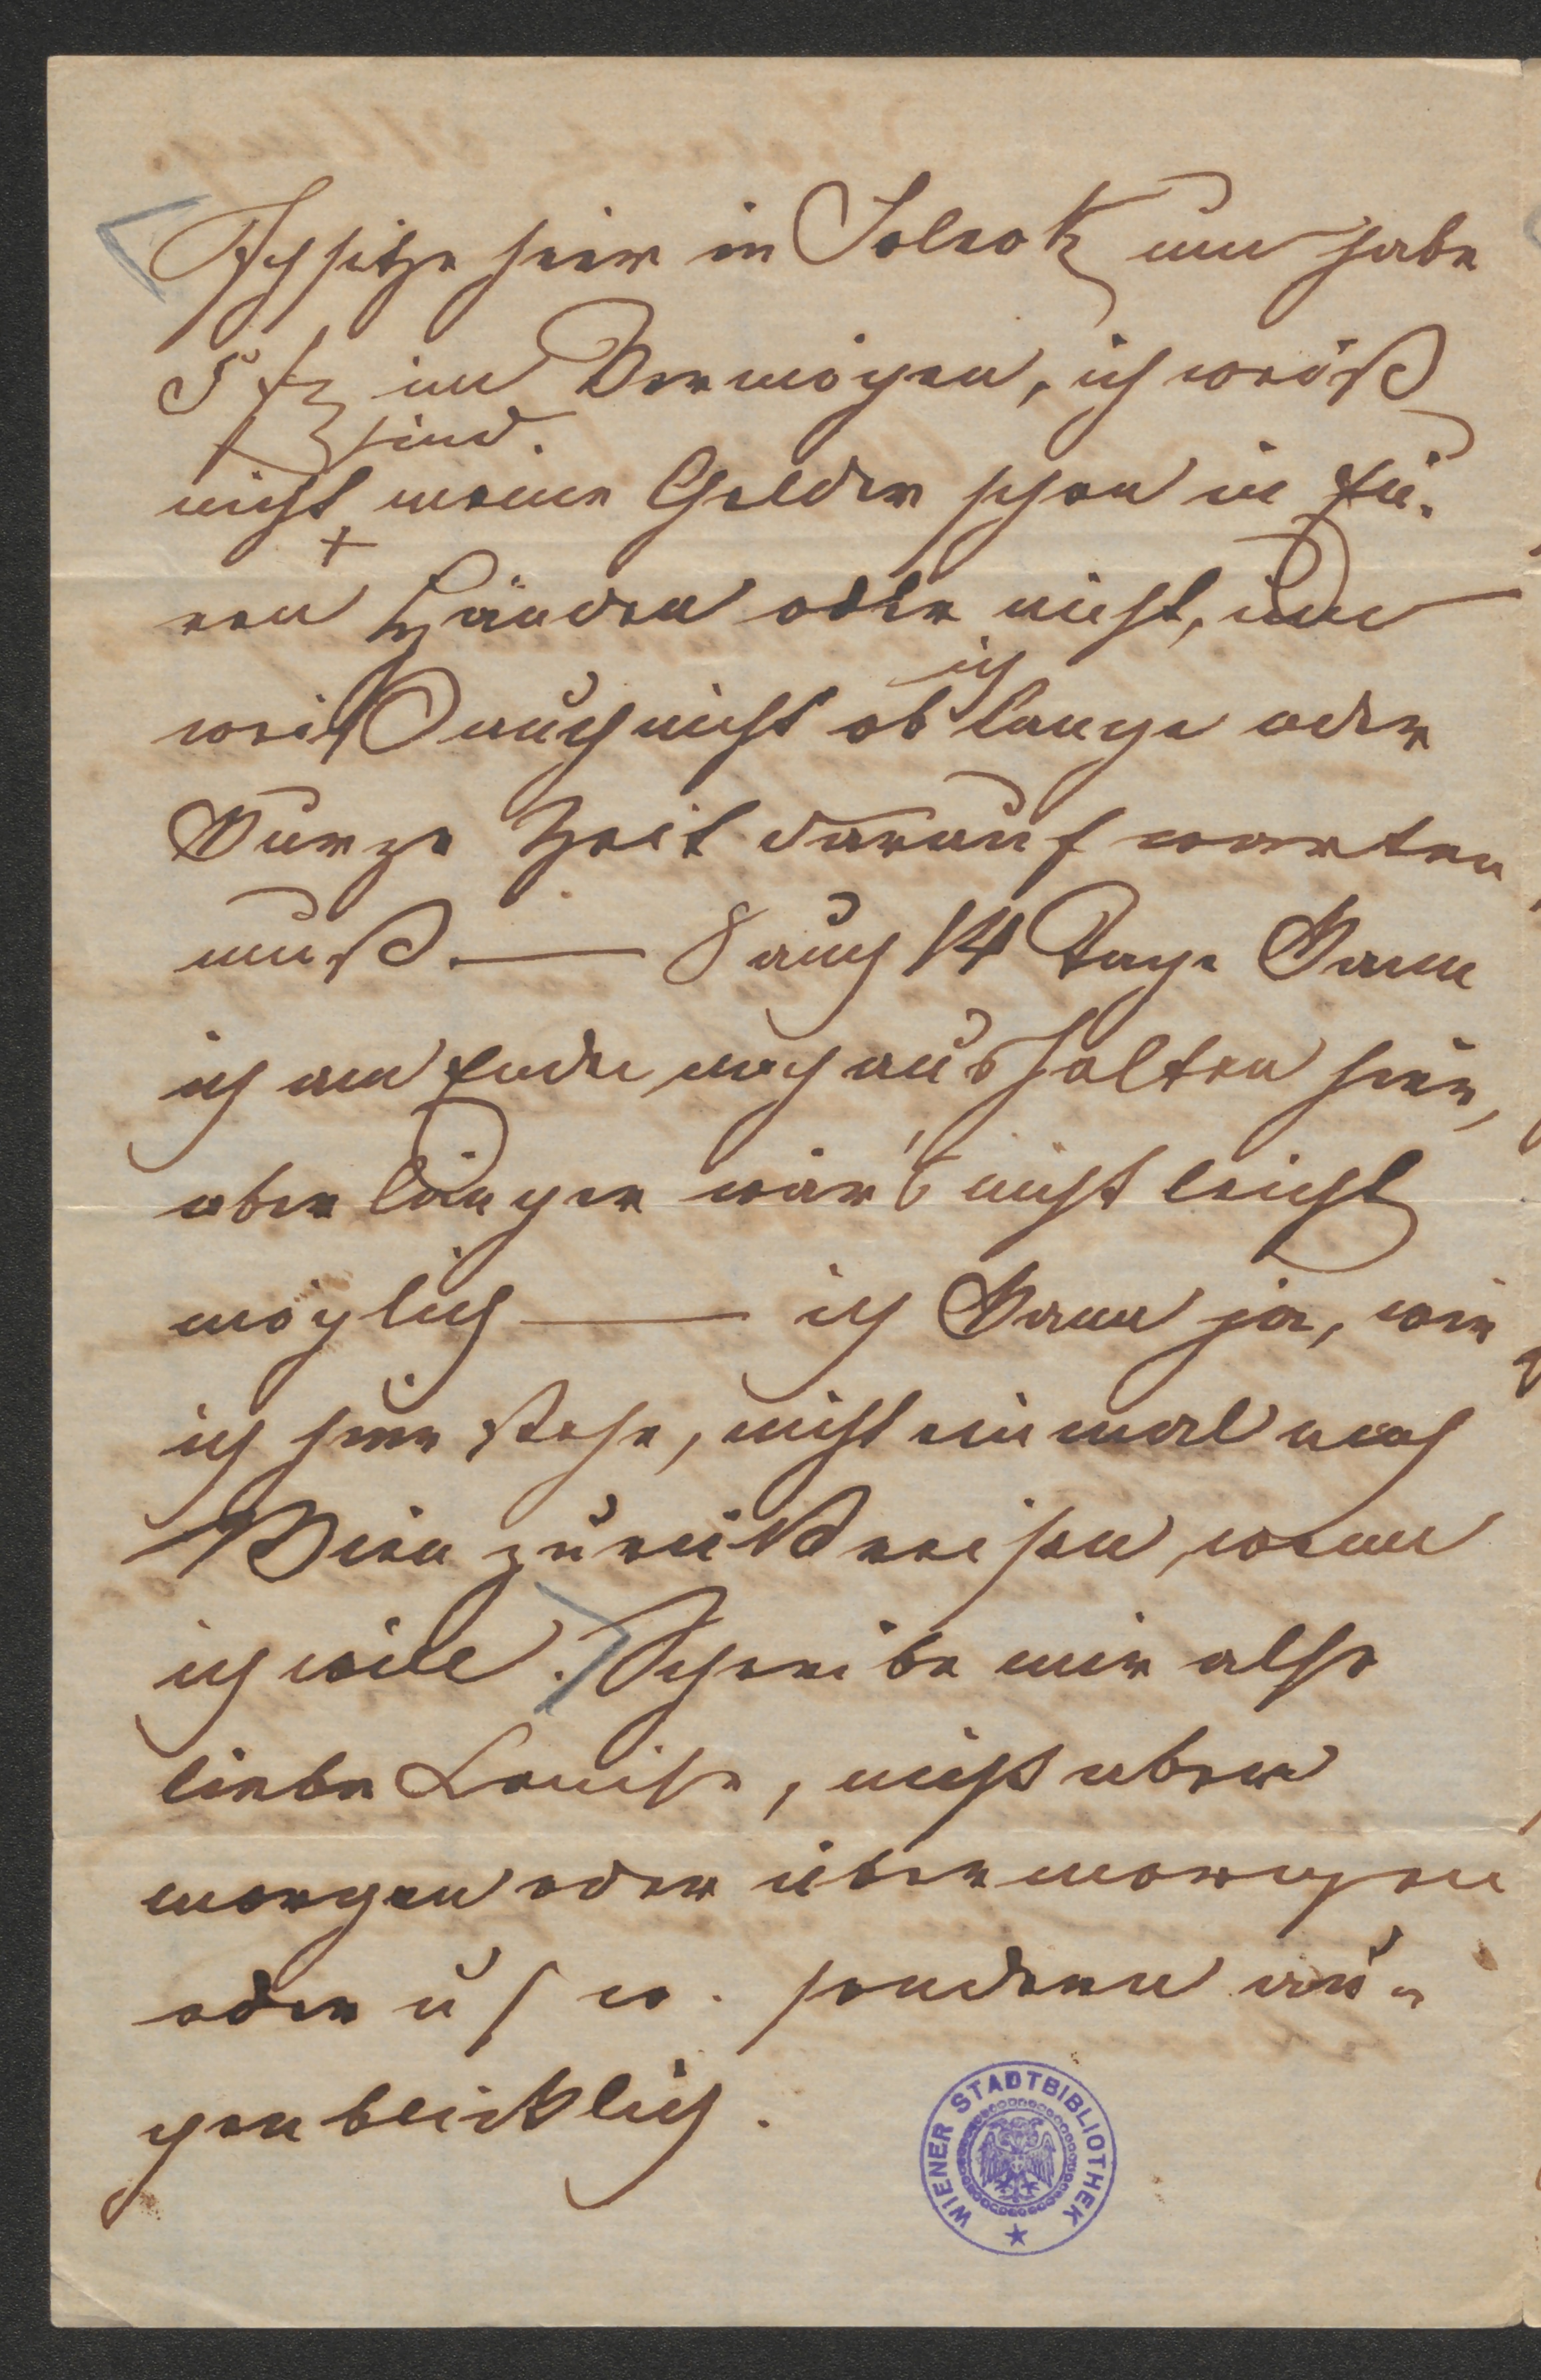 Ich sitze hier in Szolnok und habe
5 f im Vermögen, ich weiß
sind.
nicht meine Gelder schon in Eu-
ren Händen oder nicht, und
ich
weiß auch nicht ob lange oder
kurze Zeit darauf warten
muß. — 8 auch 14 Tage kann
ich am Ende noch aushalten hier,
aber länger wär's nicht leicht
möglich — ich kann ja, wie
ich hier stehe, nicht einmal nach
Wien zurückreisen, wenn
ich will. Schreibe mir also
liebe Louise, nicht aber
morgen oder übermorgen
oder u s w. sondern au-
genblicklich.
WIENER STADTBIBLIOTHEK